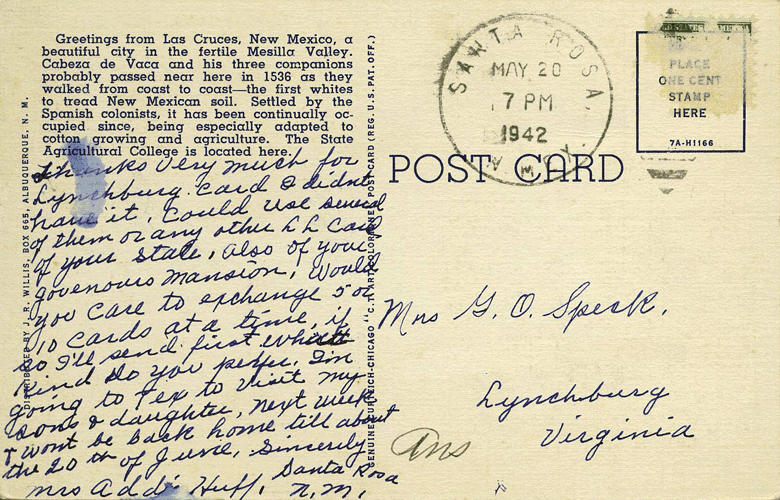 Greetings from Las Cruces, New Mexico, a
beautiful city in the fertile Mesilla Valley.
Cabeza de Vaca and his three companions
probably passed near here in 1536 as they
walked from coast to coast—the first whites
to tread New Mexican soil. Settled by the
Spanish colonists, it has been continually oc-
cupied since, being especially adapted to
cotton growing and agriculture. The State
Agricultural College is located here.
Thanks very much for
Lynchburg card I didn't
have it, could use several
of them or any other LL card
of your state, also of your
govenours mansion, would
you care to exchange 5 or
10 cards at a time, if
so I'll send first what
kind do you prefer, I'm
going to Tex to visit my
sons & daughter, next week,
& wont be back home till about
the 20th of June, Sincerely
Mrs Add Huff, Santa Rosa
N.M.
DISTRIBUTED BY J. R. WILLIS, BOX 665, ALBUQUERQUE, N. M.
GENUINE CURTEICH-CHICAGO "C.T. ART-COLORTONE" POST CARD (REG. U.S. PAT. OFF.)
SANTA ROSA,
N. M.
MAY 20
7 PM
1942
PLACE
ONE CENT
STAMP
HERE
7A-H1166
POST CARD
Mrs G. O. Speck.
Lynchburg
Virginia
Ans